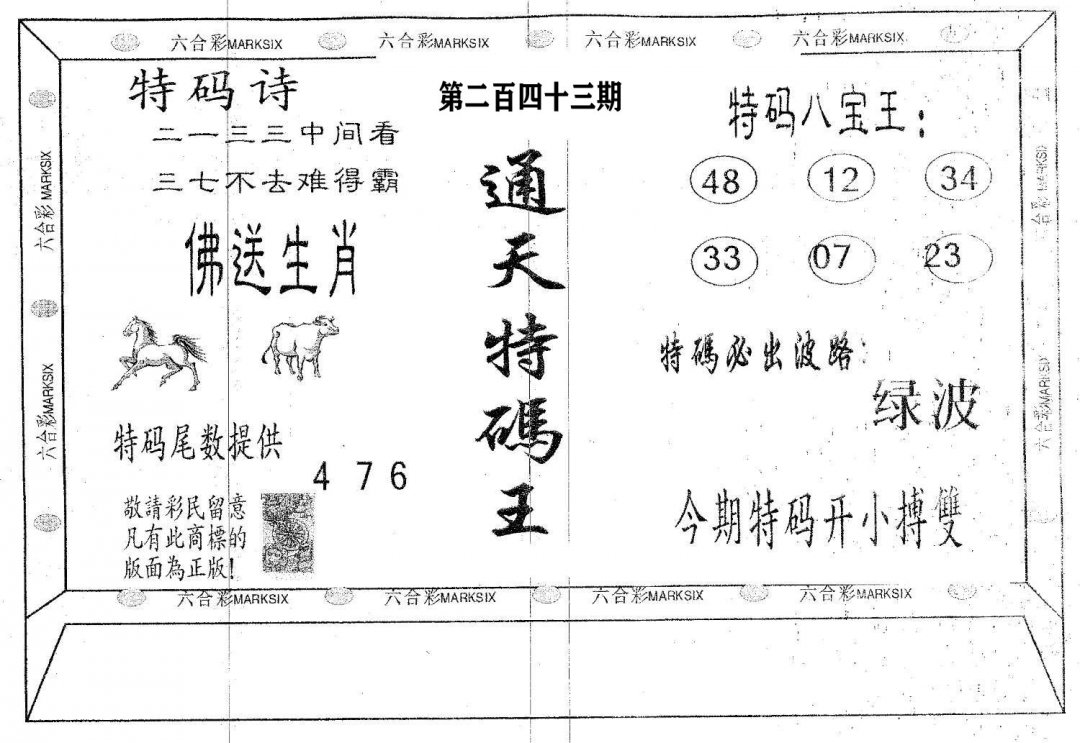 六合彩MARKSIX 六合彩MARKSIX 六合彩MARKSIX 六合彩MARKSIX
六合彩MARKSIX
六合彩MARKSIX
特码诗
二一三三中间看
三七不去难得霸
佛送生肖
特码尾数提供
4 7 6
敬請彩民留意
凡有此商標的
版面為正版!
第二百四十三期
通天特碼王
特码八宝王:
48 12 34
33 07 23
特碼必出波路:
绿波
今期特码开小搏雙
六合彩MARKSIX
六合彩MARKSIX 六合彩MARKSIX 六合彩MARKSIX 六合彩MARKSIX